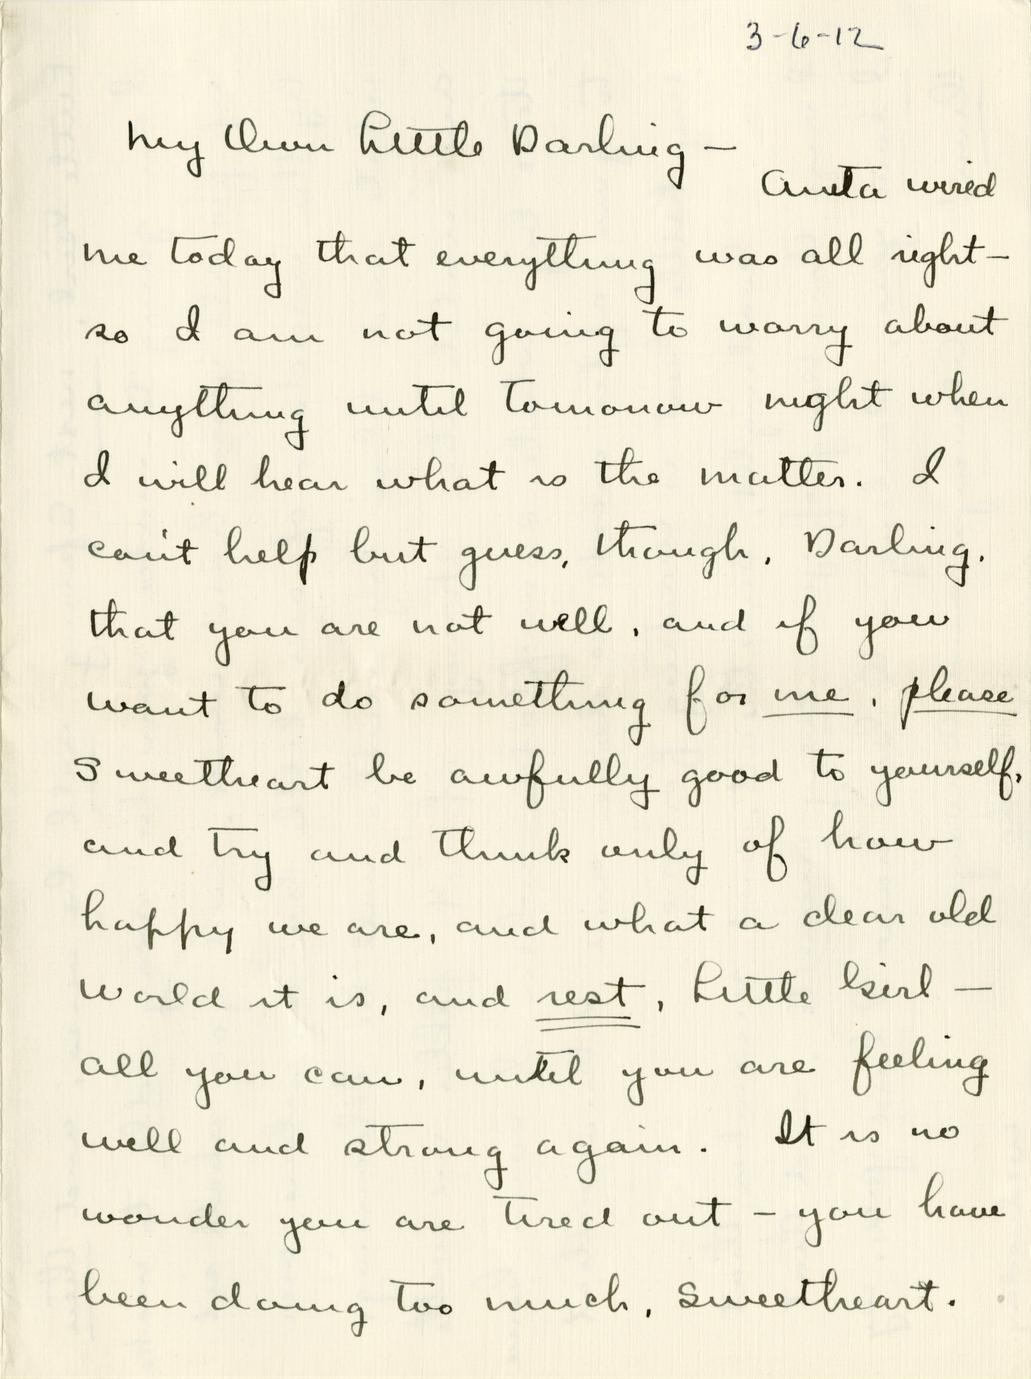 3-6-12
My Own Little Darling -
Anita wired
me today that everything was all right -
so I am not going to worry about
anything until tomorrow night when
I will hear what is the matter. I
can't help but guess, though, Darling,
that you are not well, and if you
want to do something for me, please
Sweetheart be awfully good to yourself,
and try and think only of how
happy we are, and what a dear old
World it is, and rest, Little Girl -
all you can, until you are feeling
well and strong again. It is no
wonder you are tired out - you have
been doing too much, Sweetheart.